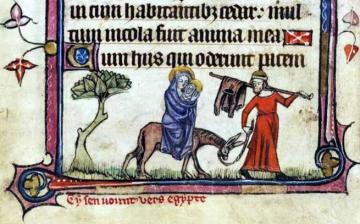 in cum habitantibz cedar: mul
tum incola fuit anima mea
Cum hiis qui oderunt pacem
Cy sen vount vers egypte